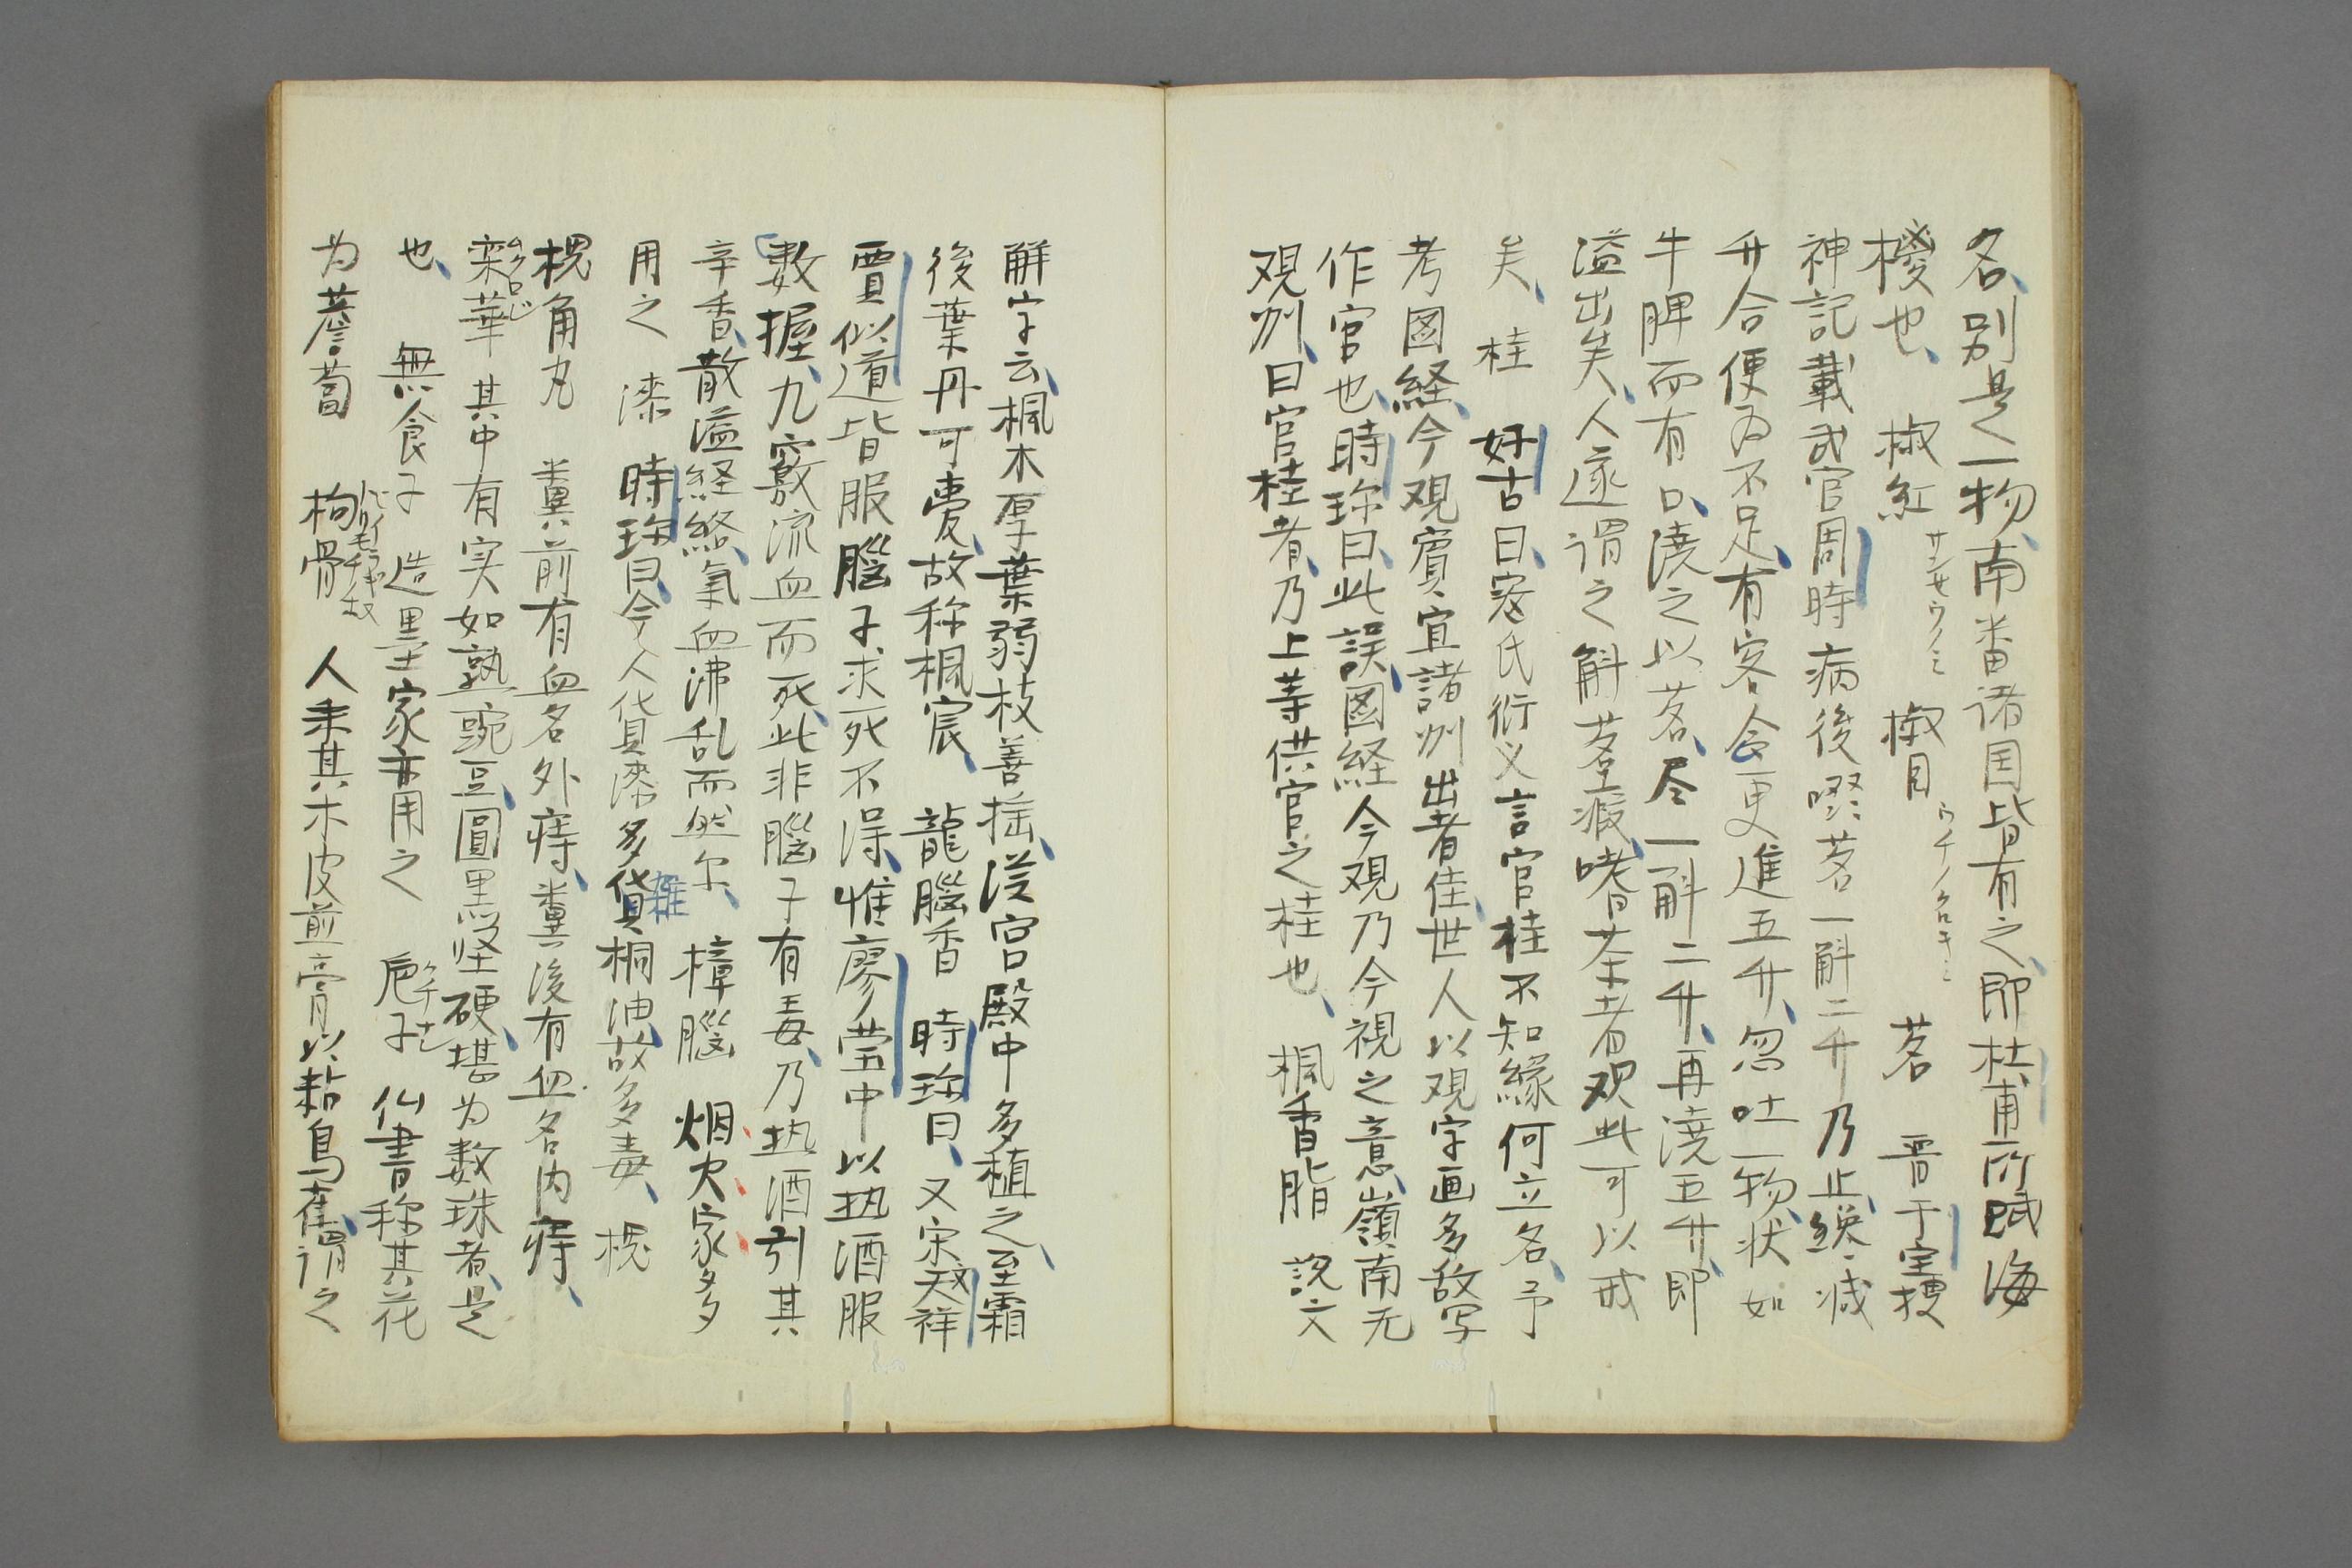 各、別是一物、南番诸国皆有之、即杜甫所賦海
椶也、 椒紅 サンセウノミ 椒目 ウチノクロキミ 茗 晋干宝搜
神記載武官周時病後啜茗一斛二升乃止、纔减
升合便为不足、有客令更進五升、忽吐一物、状如
牛脾而有口、澆之以茗、尽一斛二升、再澆五升、即
溢出矣、人遂谓之斛茗瘕、嗜茶者观此可以戒
矣、 桂 好古曰、寇氏衍义言官桂不知緣何立名、予
考図経、今観賓宜諸州出者佳、世人以观字画多故写
作官也、時珍曰、此誤、図経今观乃今視之意、嶺南无
观州、曰官桂者、乃上等供官之桂也、 楓香脂 説文
解字云、楓木厚葉弱枝善揺、漢宮殿中多植之、至霜
後葉丹可爱、故称楓宸、 龍腦香 時珍曰、又宋文天祥
賈似道皆服腦子求死不得、惟廖瑩中以热酒服
數握、九竅流血而死、此非腦子有毒、乃热酒引其
辛香、散溢経絡、氣血沸乱而然尔、 樟腦 烟火家多
用之 漆 時珍曰、今人貨漆多雜桐油、故多毒、 槐
槐角丸 糞前有血名外痔、糞後有血名内痔、
栾華 ムクロジ 其中有実如熟豌豆、圓黒坚硬、堪为数珠者、是
也、 無食子 造墨家亦用之 巵子 クチナシ 仙書称其花
为薝蔔 枸骨 人采其木皮煎膏以粘鳥雀、谓之